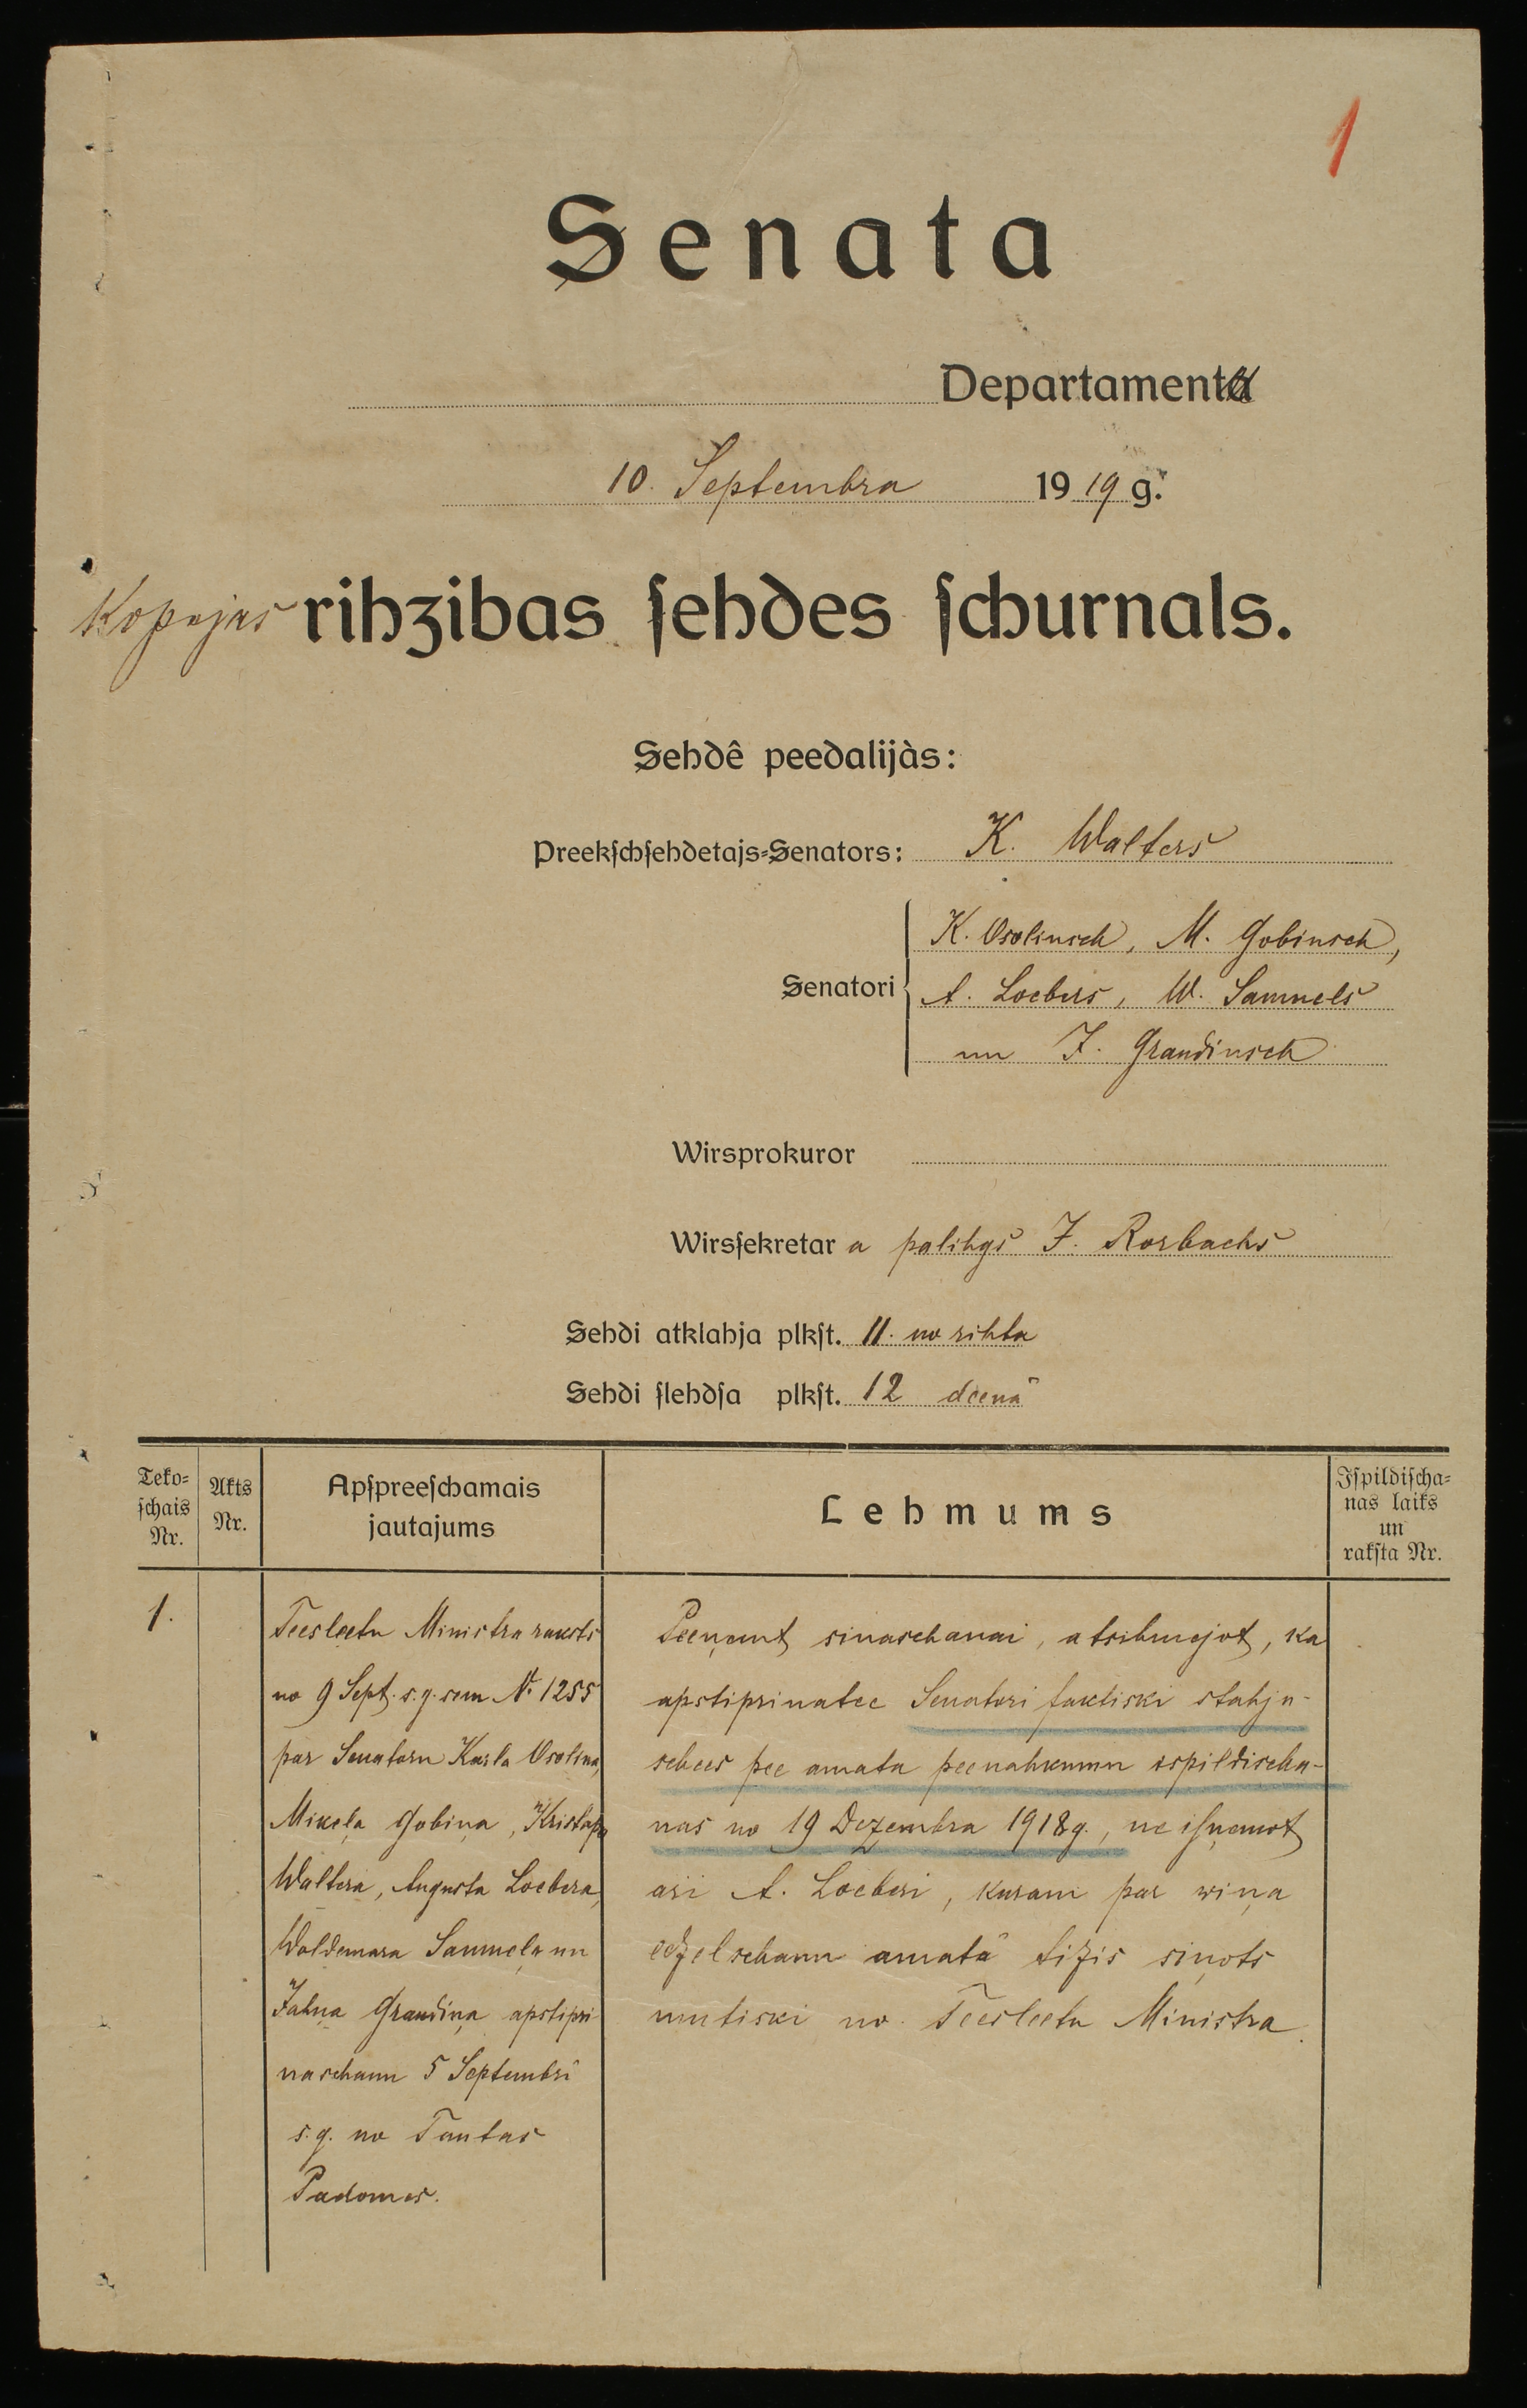 1
Senata
Departamenta
10. Septembra 1919 g.
Kopejas rihzibas ſehdes ſchurnals.
Sehdê peedalijàs:
Preekſchſehdetajs-Senators: K. Walters
K. Osolinsch, M. Gobinsch,
Senatori A. Loebers, W. Samuels
un J. Grandinsch
Wirsprokuror
Wirsſekretar a palihgs J. Rosbachs
Sehdi atklahja plkſt. 11. no rihta
Sehdi ſlehdſa plkſt. 12 deenā
Teko-
ſchais
Nr.
Akts
Nr.
Apſpreeſchamais
jautajums
Lehmums
Iſpildiſcha-
nas laiks
un
rakſta Nr.
1.
Teesleetu Ministra raksts
no 9 Sept. s.g. sem № 1255
par Senatoru Karla Osolina,
Mikeļa Gobiņa, Kristapa
Waltera, Augusta Loebera,
Woldemara Samueļa un
Jahņa Grandiņa apstipri-
naschanu 5 Septembrī
s.g. no Tautas
Padomes.
Peeņemt sinaschanai, atsihmejot, ka
apstiprinatee Senatori faktiski stahju-
schees pee amata peenahkumu ispildischa-
nas no 19 Dezembra 1918 g., ne isņemot
arī A. Loeberi, kuram par wiņa
eezelschanu amatā tizis siņots
mutiski no Teesleetu Ministra.